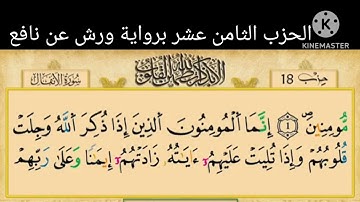 الحزب الثامن عشر برواية ورش عن نافع
KINEMASTER
سُورَةُ الأَنفَالِ
أَلَا بِذِكْرِ اللَّهِ تَطْمَئِنُّ الْقُلُوبُ
حِزْب 18
مُّومِنِينَۖ ۝١ إِنَّمَا اَ۬لْمُومِنُونَ اَ۬لذِينَ إِذَا ذُكِرَ اَ۬للَّهُ وَجِلَتْ
قُلُوبُهُمْ وَإِذَا تُلِيَتْ عَلَيْهِمُۥٓ ءَايَٰتُهُۥ زَادَتْهُمُۥٓ إِيمَٰناٗ وَعَلَىٰ رَبِّهِمْ